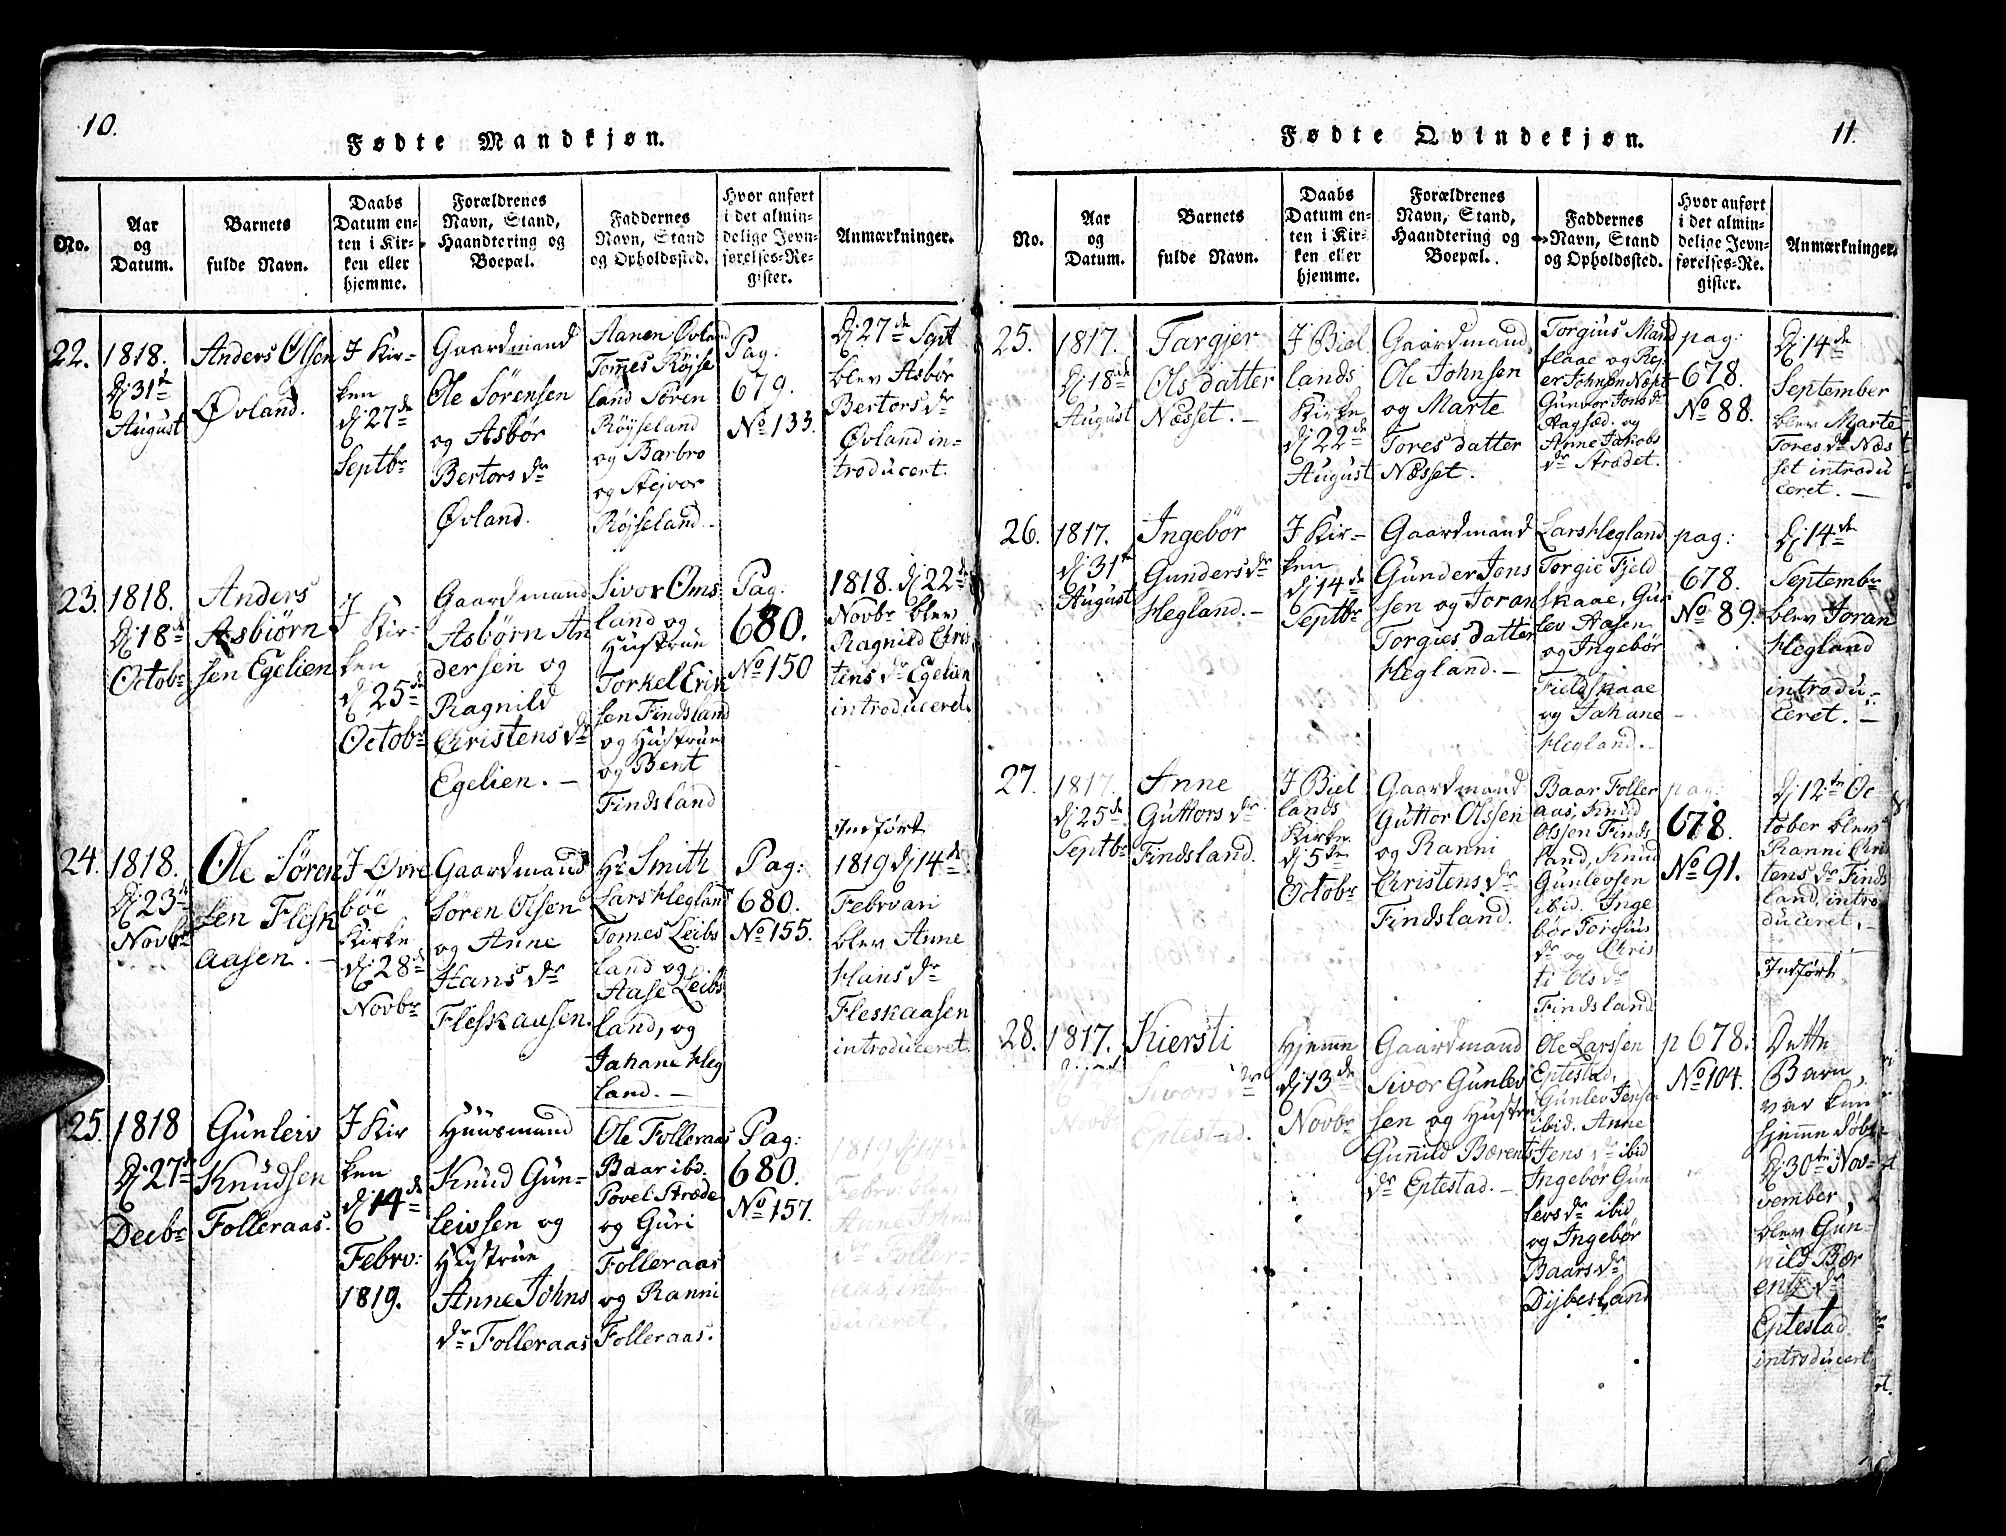 10.
Fødte Mandkjøn.
No.
Aar
og
Datum.
Barnets
fulde Navn.
Daabs
Datum en-
ten i Kir-
ken eller
hjemme.
Forældrenes
Navn, Stand,
Haandtering og
Boepæl.
Faddernes
Navn, Stand
og Opholdssted.
Hvor anført
i det almin-
delige Jevn-
førelses-Re-
gister.
Anmærkninger.
22.
1818.
Dj 31te
August
Anders Olsen
Øvland.
I Kir-
ken
dj 27de
Septbr
Gaardmand
Ole Sörensen
og Asbör
Bertors dr
Øvland.
Aanen Øvland
Tomes Röjse
land Sören
Röyseland
og Barbro
og Stejvor
Röjseland.
Pag:
679.
No 133.
Dj 27de Sept
blev Asbör
Bertors dr
Øvland in-
troducert.
23.
1818.
Dj 18de
Octobr
Anders
Asbiörn
sen Egelien
I
Kir-
ken
dj 25de
Octobr
Gaardmand
Asbörn An
dersen og
Ragnild
Christens dr
Egelien. -
Sivor Oms
land og
Hustrue
Torkel Erik
sen Findsland
og Hustrue
og Bent
Findsland
Pag:
680.
No 150
1818. dj 22de
Novbr blev
Ragnild Chris
tens dr Egelien
introducert.
24.
1818.
Dj 23de
Novbr
Ole Sören
sen Flesk
aasen. -
I Øvre
böe
Kirke
dj 28de
Novbr
Gaardmand
Sören Olsen
og Anne
Hans dr
Fleskaasen.
Hr Smith
Lars Hegland
Tomes Leibs
land og
Aase Leibs
land, og
Jahane Heg
land. -
Pag:
680.
No 155.
Indført
1819 dj 14de
Februari
blev Anne
Hans dr
Fleskaasen
introduceret.
25.
1818
Dj 27de
Decbr
Gunleiv
Knudsen
Folleraas.
I Kir
ken
dj 14de
Febro:
1819.
Huusmand
Knud Gun-
leivsen og
Hustrue
Anne Johns
dr Folleraas
Ole Folleraas
Baar ibd.
Povel Stræde
og Guri
Folleraas
og Ranni
Folleraas.
Pag:
680.
No 157.
1819 dj 14de
Febro blev
Anne Johns
dr Foller-
aas, intro
duceret.
11.
Fødte Qvindekjøn.
No.
Aar
og
Datum.
Barnets
fulde Navn.
Daabs
Datum en-
ten i Kir-
ken eller
hjemme.
Forældrenes
Navn, Stand,
Haandtering og
Boepæl.
Faddernes
Navn, Stand
og Opholdssted.
Hvor anført
i det almin-
delige Jevn-
førelses-Re-
gister.
Anmærkninger.
25.
1817.
Dj 18de
August
Targjer
Ols datter
Næsset. -
I Biel
lands
Kirke
dj 22de
August
Gaardmand
Ole Johnsen
og Marte
Tores datter
Næsset.
Torgius Mand
flaae og Rej
er Johnsen Næset
Gunvor Jons dr
Aagsæd. og
Anne Jakobs
dr Strædet.
pag:
678.
No 88.
Dj 14de
September
blev Marte
Tores dr Næs
set introdu
ceret. -
26.
1817.
dj 31te
August
Ingebör
Gunders dr
Hegland. -
I Kir-
ken
dj 14de
Septbr
Gaardmand
Gunder Jons
sen og Joran
Torgies datter
Hegland. -
Lars Hegland
Torgie Fjeld
skaae, Gun
lev Aasen
og Ingebör
Fieldskaae
og Jahane
Hegland. -
pag:
678.
No 89.
Dj 14de
Septembr
blev Joran
Hegland
introdu-
ceret. -
27.
1817.
dj 25de
Septbr
Anne
Guttors dr
Findsland.
I Biel
lands
Kirke
dj 5de
Octobr
Gaardmand
Guttor Olssen
og Ranni
Christens dr
Findsland.
Baar Foller
aas, Knud
Olssen Finds
land, Knud
Gunlevsen
ibid. Inge
bör Torgius
dr og Chris
ti Ols dr
Findsland
pag:
678.
No 91.
Dj 12te Oc
tober blev
Ranni Chris
tens dr Finds
land, intro
duceret. -
Indført
28.
1817.
Novbr
Kiersti
Sivors dr
Eptestad.
Hjemme
dj 13de
Novbr
Gaardmand
Sivor Gunlev
sen og Hustru
Gunild Bærents
dr Eptestad. -
Ole Larssen
Eptestad,
Gunlev Jensen
ibid. Anne
Jens dr ibid
Ingebör Gun
levs dr ibid
og Ingebör
Baars dr
Dijbesland
p 678.
No 104.
Dette
Barn
var kun
hjemme döbt
Dj 30te Nov-
vember
blev Gun-
nild Bær
entz dr
Eptestad.
introducert